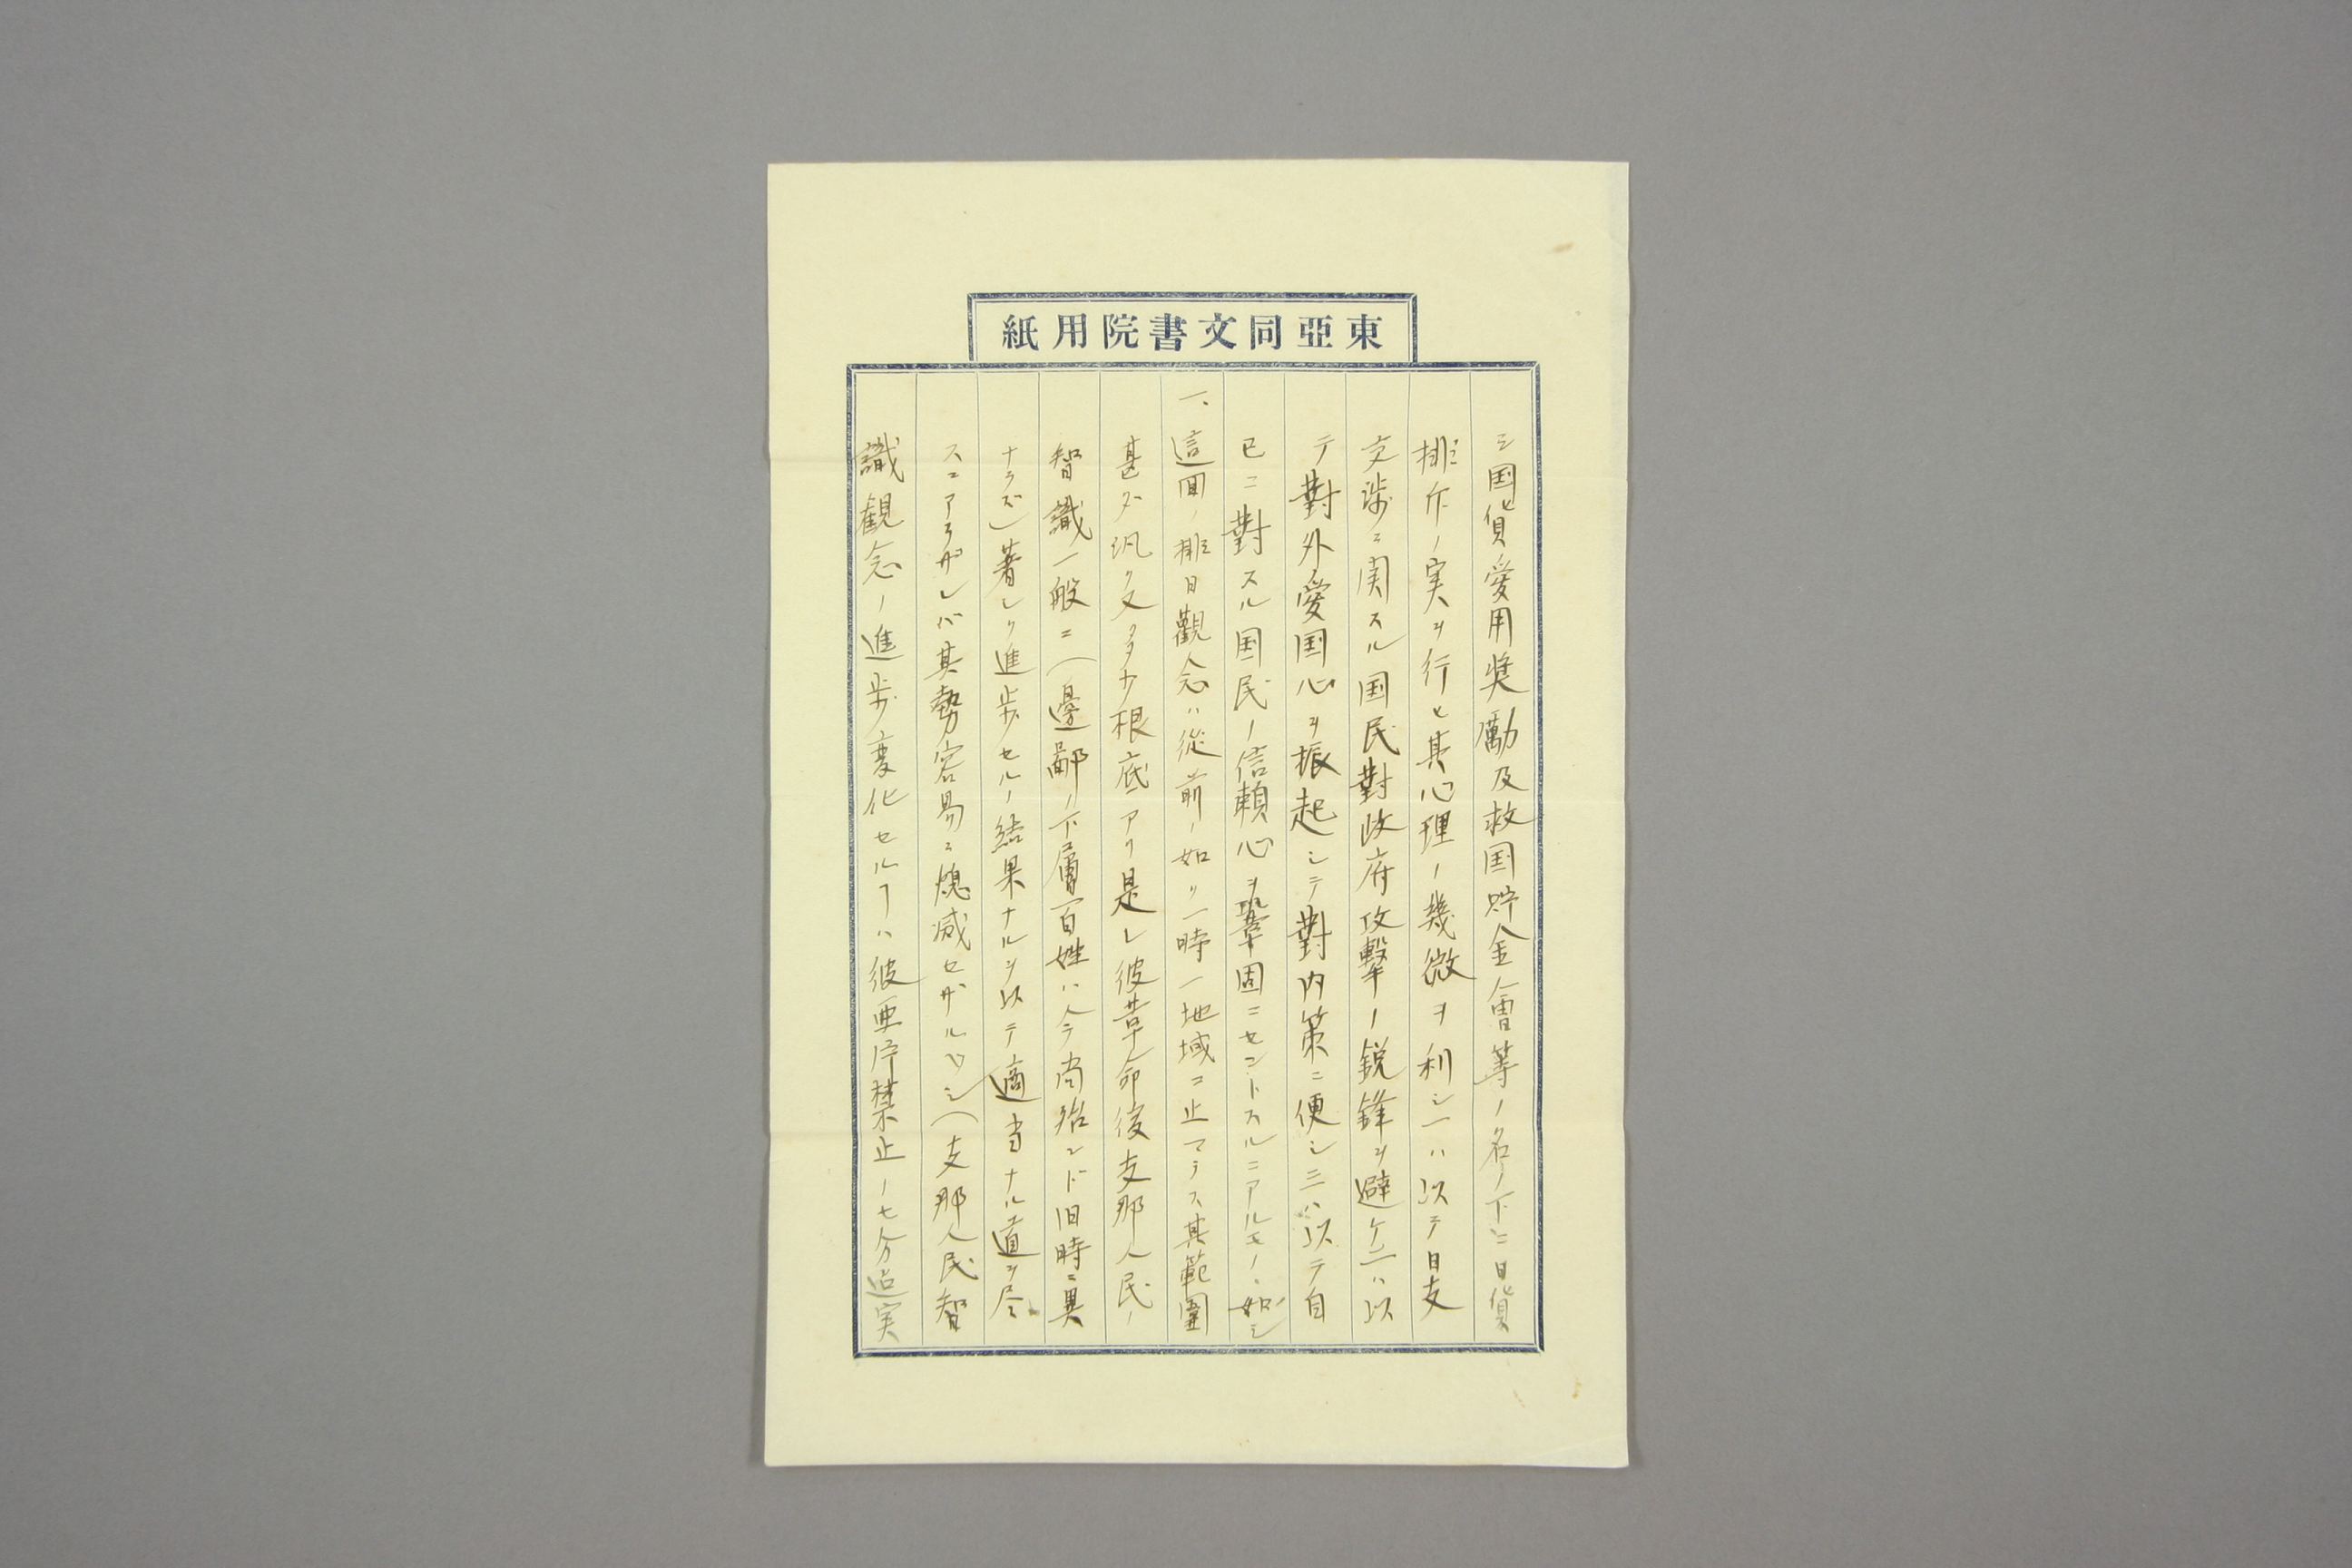 東亞同文書院用紙
シ国貨愛用奨勵及救国貯金會等ノ名ノ下ニ日貨
排斥ノ実ヲ行ヒ其心理ノ幾微ヲ利シ一ハ以テ日支
交渉ニ関スル国民對政府攻撃ノ鋭鋒ヲ避ケ二ハ以
テ對外愛国心ヲ振起シテ對内策ニ便シ三ハ以テ自
已ニ對スル国民ノ信頼心ヲ鞏固ニセントスルニアルモノヽ如シ
一、這回ノ排日觀念ハ從前ノ如ク一時一地域ニ止マラス其範圍
甚ダ汎ク又タ根底アリ是レ彼革命後支那人民ノ
智識一般ニ(邊鄙ノ下層百姓ハ今尚殆ンド旧時ニ異
ナラズ)著しク進歩セルノ結果ナルヲ以テ適当ナル道ヲ尽
スニアラザレバ其勢容易ニ熄滅セザルベシ(支那人民智
識観念ノ進歩変化セルヿハ彼亜片禁止ノ七分迠実